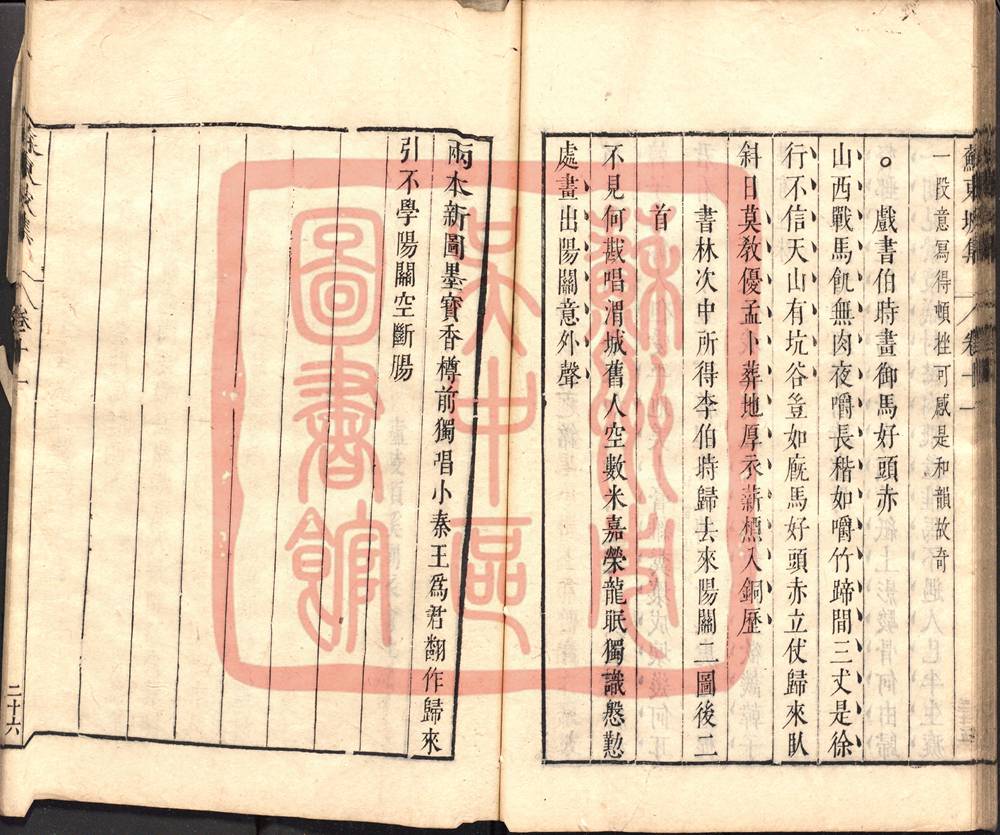 蘇東坡集 卷十一
一段意寫得頓挫可感是和韻故奇
。戲書伯時畫御馬好頭赤
山西戰馬飢無肉夜嚼長稭如嚼竹蹄間三丈是徐
行不信天山有坑谷豈如廐馬好頭赤立仗歸來臥
斜日莫敎優孟卜葬地厚衣薪槱入銅歷
書林次中所得李伯時歸去來陽關二圖後二
首
不見何戡唱渭城舊人空數米嘉榮龍眠獨識慇懃
處畫出陽關意外聲
兩本新圖墨寳香樽前獨唱小秦王爲君翻作歸來
引不學陽關空斷腸
卷十一
二十六
蘇州市
吴中區
圖書館